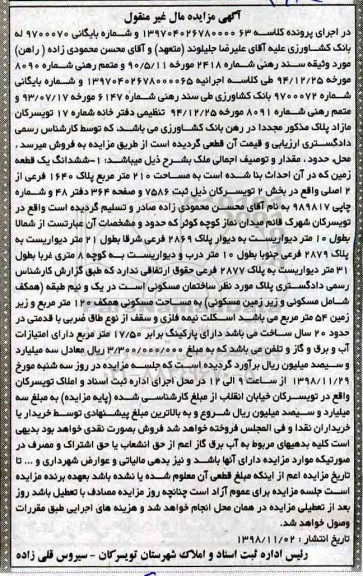 آگهی مزایده مال غیر منقول
در اجرای پرونده کلاسه ۶۳ ۱۳۹۷۰۴۰۲۶۷۸۰۰۰۰ و شماره بایگانی ۹۷۰۰۰۷۰ له
بانک کشاورزی علیه آقای علیرضا جلیلوند (متعهد) و آقای محسن محمودی زاده (راهن)
مورد وثیقه سند رهنی شماره ۲۴۱۸ مورخه ۹۰/۵/۱۱ و متمم رهنی شماره ۸۰۹۰
مورخه ۹۴/۱۲/۲۵ طی کلاسه اجرائیه ۱۳۹۷۰۴۰۲۶۷۸۰۰۰۰۶۵ و شماره بایگانی
۹۷۰۰۰۷۲ بانک کشاورزی طی سند رهنی شماره ۶۱۴۷ مورخه ۹۳/۰۷/۱۷ و
متمم رهنی شماره ۸۰۹۱ مورخه ۹۴/۱۲/۲۵ تنظیمی دفتر خانه شماره ۱۷ تویسرکان
مازاد پلاک مذکور مجددا در رهن بانک کشاورزی می باشد، که توسط کارشناس رسمی
دادگستری ارزیابی و قیمت آن قطعی گردیده است از طریق مزایده به فروش میرسد .
محل، حدود ، مقدار و توصیف اجمالی ملک بشرح ذیل میباشد: ۱-ششدانگ یک قطعه
زمین که در آن احداث بنا شده است به مساحت ۲۱۰ متر مربع پلاک ۱۶۴۰ فرعی از
۲ اصلی واقع در بخش ۲ تویسرکان ذیل ثبت ۷۵۸۶ و صفحه ۳۶۴ دفتر ۴۸ و شماره
چاپی ۹۸۹۸۱۷ به نام آقای محسن محمودی زاده صادر و تسلیم گردیده است واقع در
تویسرکان شهرک قائم میدان نماز کوچه کوثر که حدود و مشخصات آن عبارتست از شمالا
بطول ۱۰ متر دیواریست به دیوار پلاک ۲۸۶۹ فرعی شرقا بطول ۲۱ متر دیواریست به
پلاک ۲۸۷۹ فرعی جنوبا بطول ۱۰ متر درب و دیواریست به کوچه ۸ متری غربا بطول
۳۱ متر دیواریست به پلاک ۲۸۷۷ فرعی حقوق ارتفاقی ندارد که طبق گزارش کارشناس
رسمی دادگستری پلاک مورد نظر ساختمان مسکونی است در یک و نیم طبقه (همکف
شامل مسکونی و زیر زمین مسکونی) به مساحت مسکونی همکف ۱۲۰ متر مربع و زیر
زمین ۵۴ متر مربع می باشد اسکلت نیمه فلزی و سقف از نوع طاق ضربی با قدمتی در
حدود ۲۰ سال ساخت می باشد دارای پارکینگ برابر ۱۷/۵۰ متر مربع دارای امتیازات
آب و برق و گاز و تلفن می باشد که به مبلغ ۳/۳۰۰/۰۰۰/۰۰۰ ریال معادل سه میلیارد
و سیصد میلیون ریال برآورد گردیده است که جلسه مزایده در روز سه شنبه مورخ
۱۳۹۸/۱۱/۲۹ از ساعت ۹ الی ۱۲ در محل اجرای اداره ثبت اسناد و املاک تویسرکان
واقع در تویسرکان خیابان انقلاب از مبلغ کارشناسی شده (پایه مزایده) به مبلغ سه
میلیارد و سیصد میلیون ریال شروع و به بالاترین مبلغ پیشنهادی توسط خریدار یا
خریداران نقدا و فی المجلس فروخته خواهد شد فروش بصورت نقدی خواهد بود بدیهی
است کلیه بدهیهای مربوط به آب برق گاز اعم از حق انشعاب یا حق اشتراک و مصرف در
صورتیکه موارد مزایده دارای آنها باشد و نیز بدهی مالیاتی و عوارض شهرداری و ... تا
تاریخ مزایده اعم از اینکه مبلغ قطعی آن معلوم شده یا نشده باشد بعهده برنده مزایده
است جلسه مزایده برای عموم آزاد است چنانچه روز مزایده مصادف با تعطیل باشد روز
بعد از تعطیلی مزایده در همان محل انجام خواهد شد و هزینه های اجرایی طبق مقررات
وصول خواهد شد.
تاریخ انتشار : ۱۳۹۸/۱۱/۰۲
رئیس اداره ثبت اسناد و املاک شهرستان تویسرکان - سیروس قلی زاده